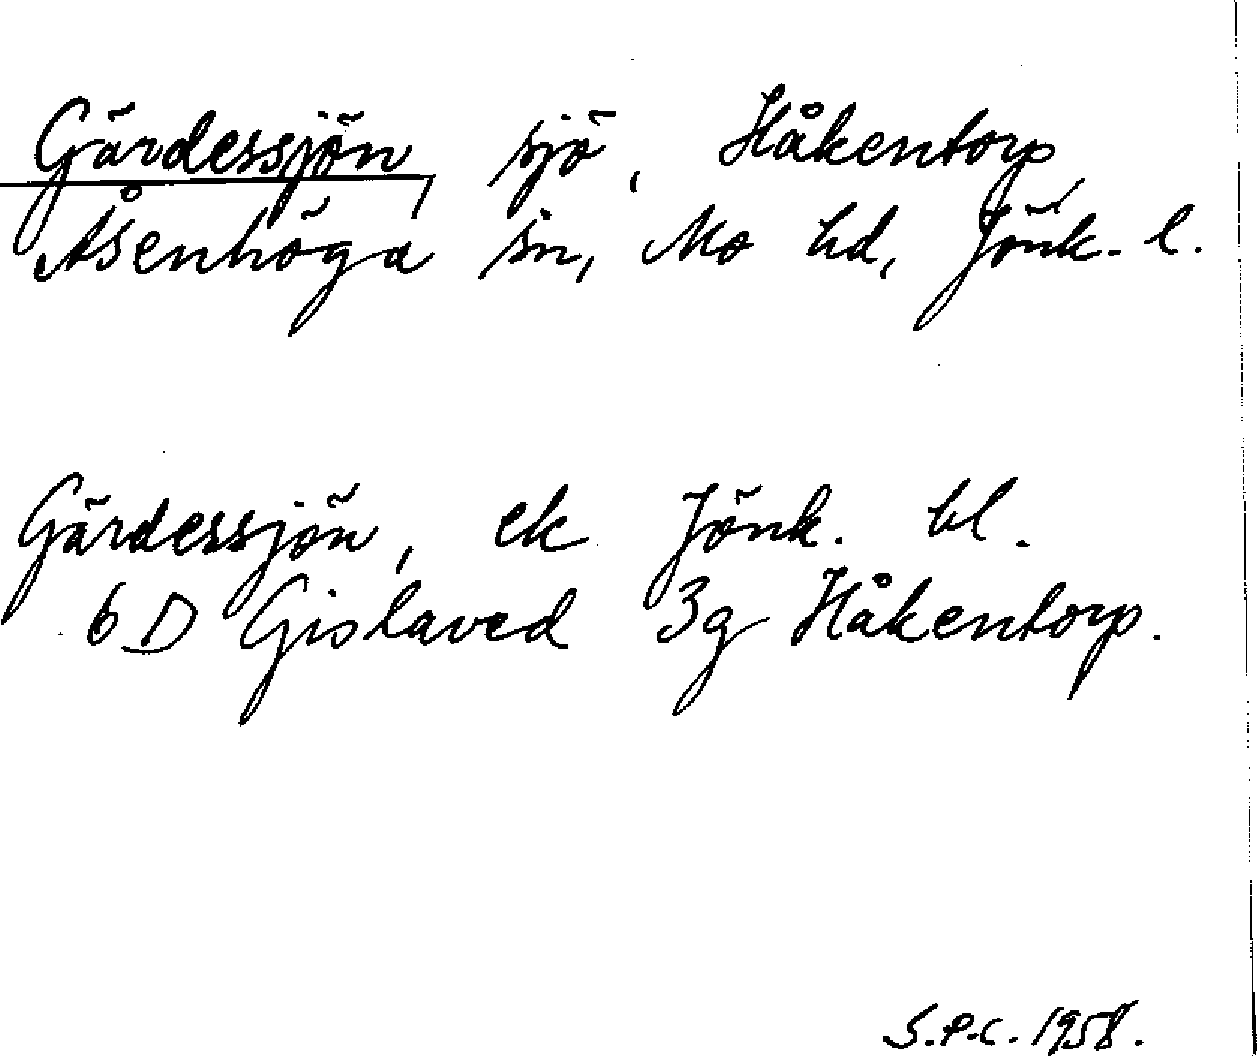 Gärdessjön, sjö, Håkentorp,
Åsenhöga sn, Mo hd, Jönk. l.
Gärdessjön, ek Jönk. bl.
6 D Gislaved 3g Håkentorp.
S.P.C. 1958.